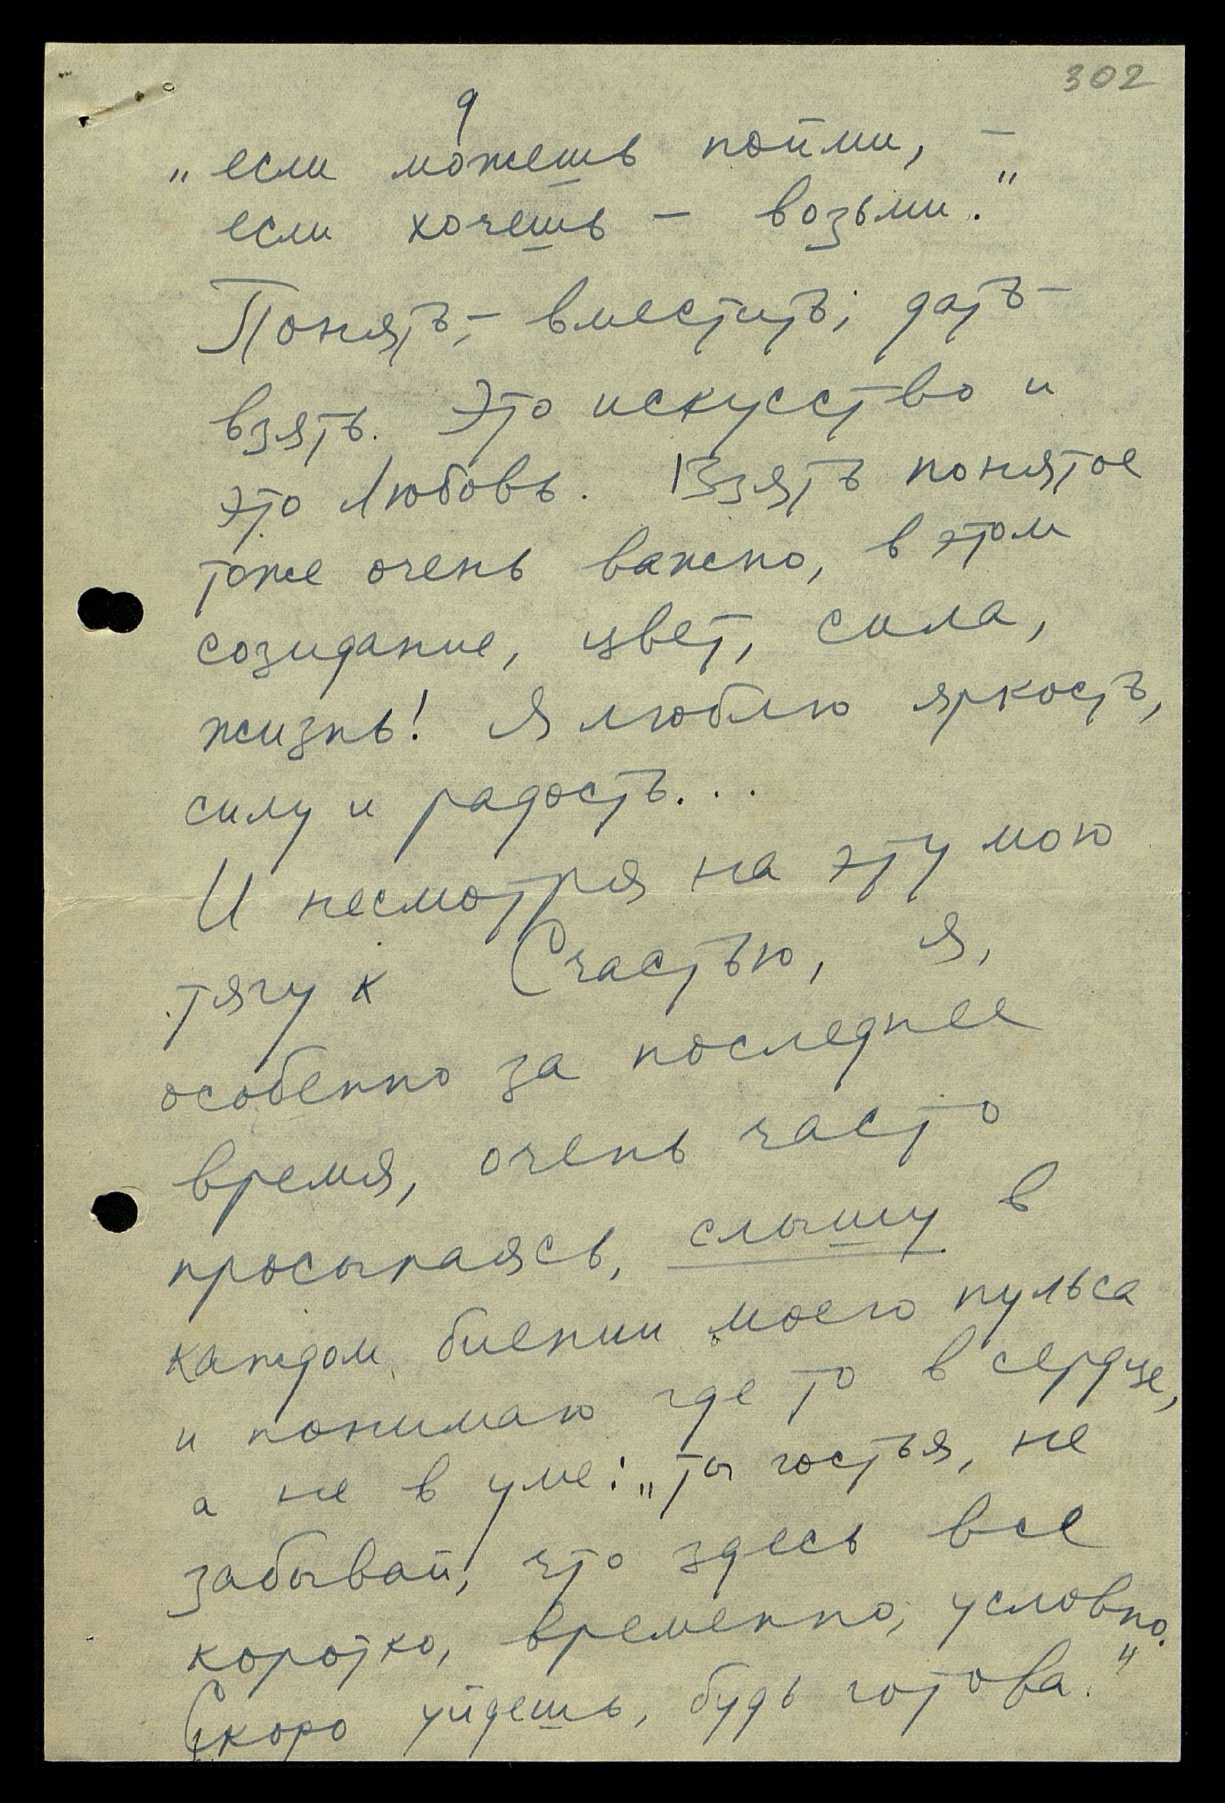 302
9
„если можешь пойми, —
если хочешь — возьми."
Понять, — вместить; дать —
взять. Это искусство и
это Любовь. Взять понятое
тоже очень важно, в этом
созидание, цвет, сила,
жизнь! Я люблю яркость,
силу и радость...
И несмотря на эту мою
тягу к Счастью, я,
особенно за последнее
время, очень часто
просыпаясь, слышу в
каждом биении моего пульса
и понимаю где то в сердце,
а не в уме: „ты гостья, не
забывай, что здесь все
коротко, временно, условно.
Скоро уйдешь, будь готова."